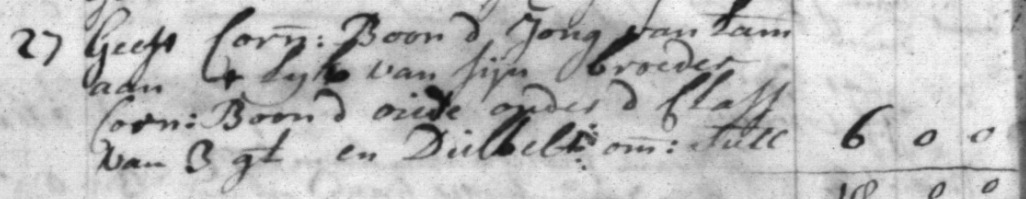 27 Geeft Corn: Boon d Jong van Lam
aan t Lyk van sijn broeder
Corn: Boon d oude onder d Class
van 3 gl en Dubbelt om: 6 0 0
18 0 0